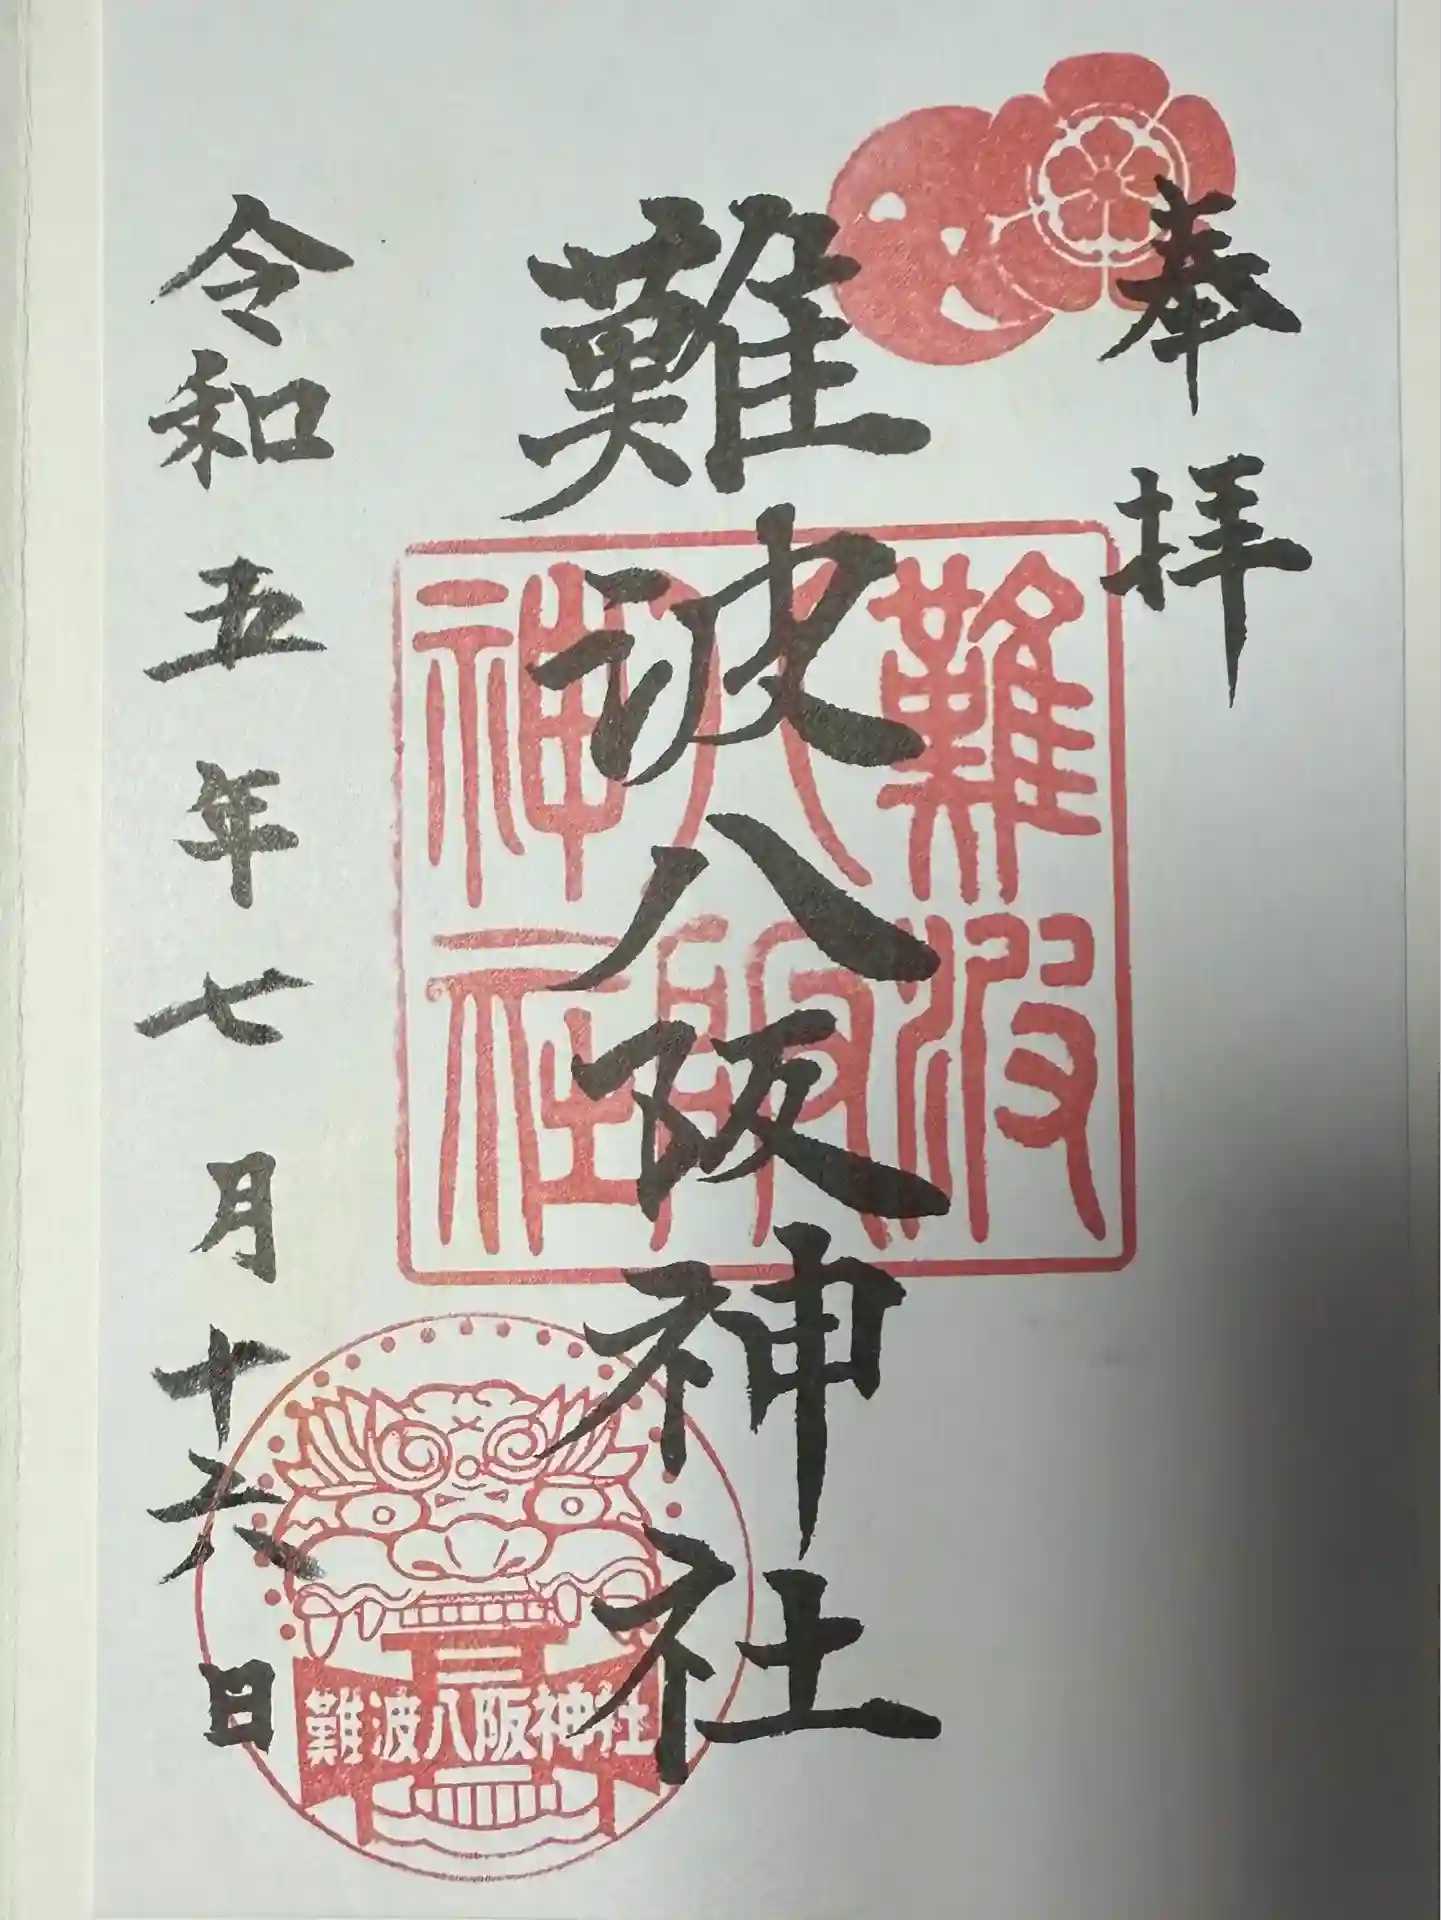 奉拝
難波八阪神社
令和五年七月十六日
難波八阪神社
難波八阪神社